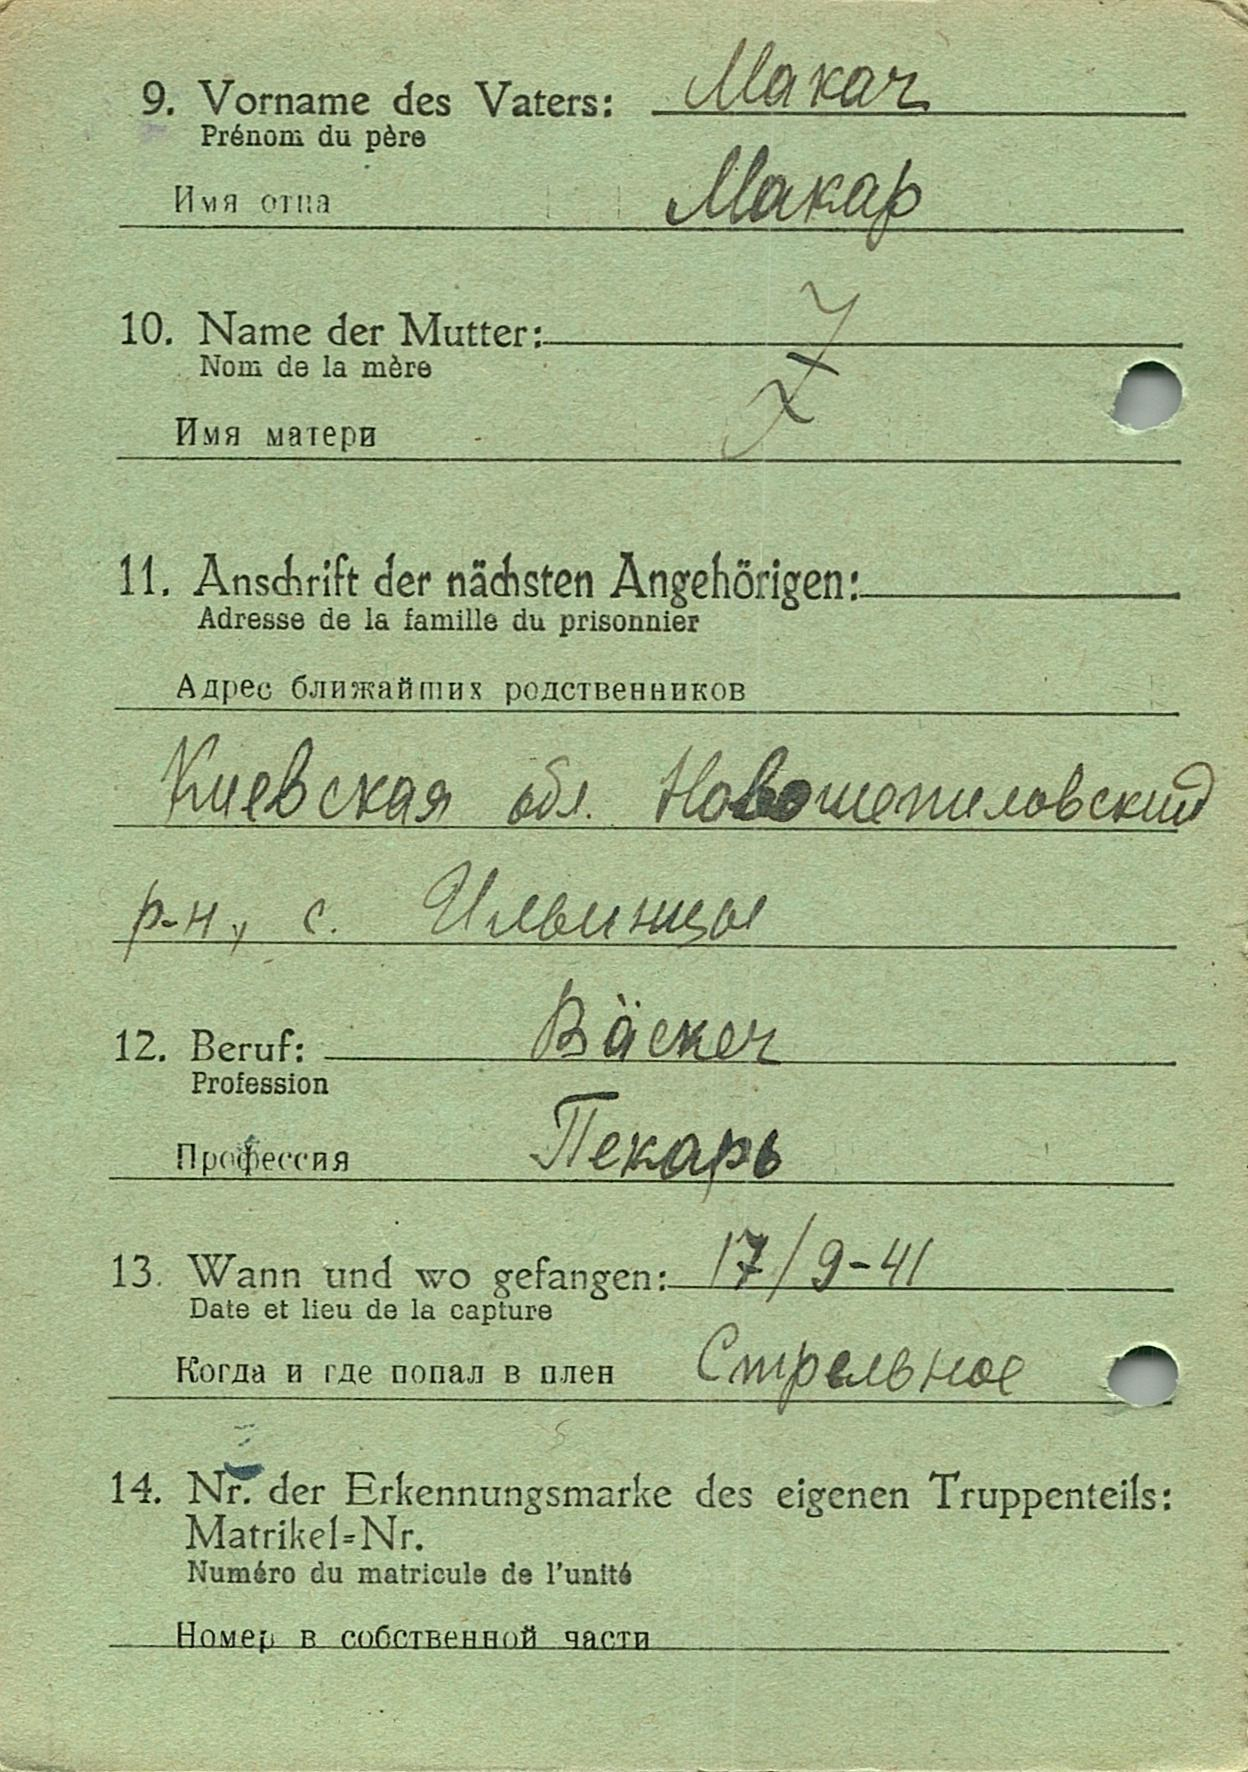 9. Vorname des Vaters: Makar
Prénom du père
Имя отца Макар
10. Name der Mutter:
Nom de la mère
Имя матери
11. Anschrift der nächsten Angehörigen:
Adresse de la famille du prisonnier
Адрес ближайших родственников
Киевская обл. Новошепиловский
р-н, с. Ильинцы
12. Beruf: Bäcker
Profession
Профессия Пекарь
13. Wann und wo gefangen: 17/9-41
Date et lieu de la capture
Когда и где попал в плен Стрельное
14. Nr. der Erkennungsmarke des eigenen Truppenteils:
Matrikel=Nr.
Numéro du matricule de l'unité
Номер в собственной части